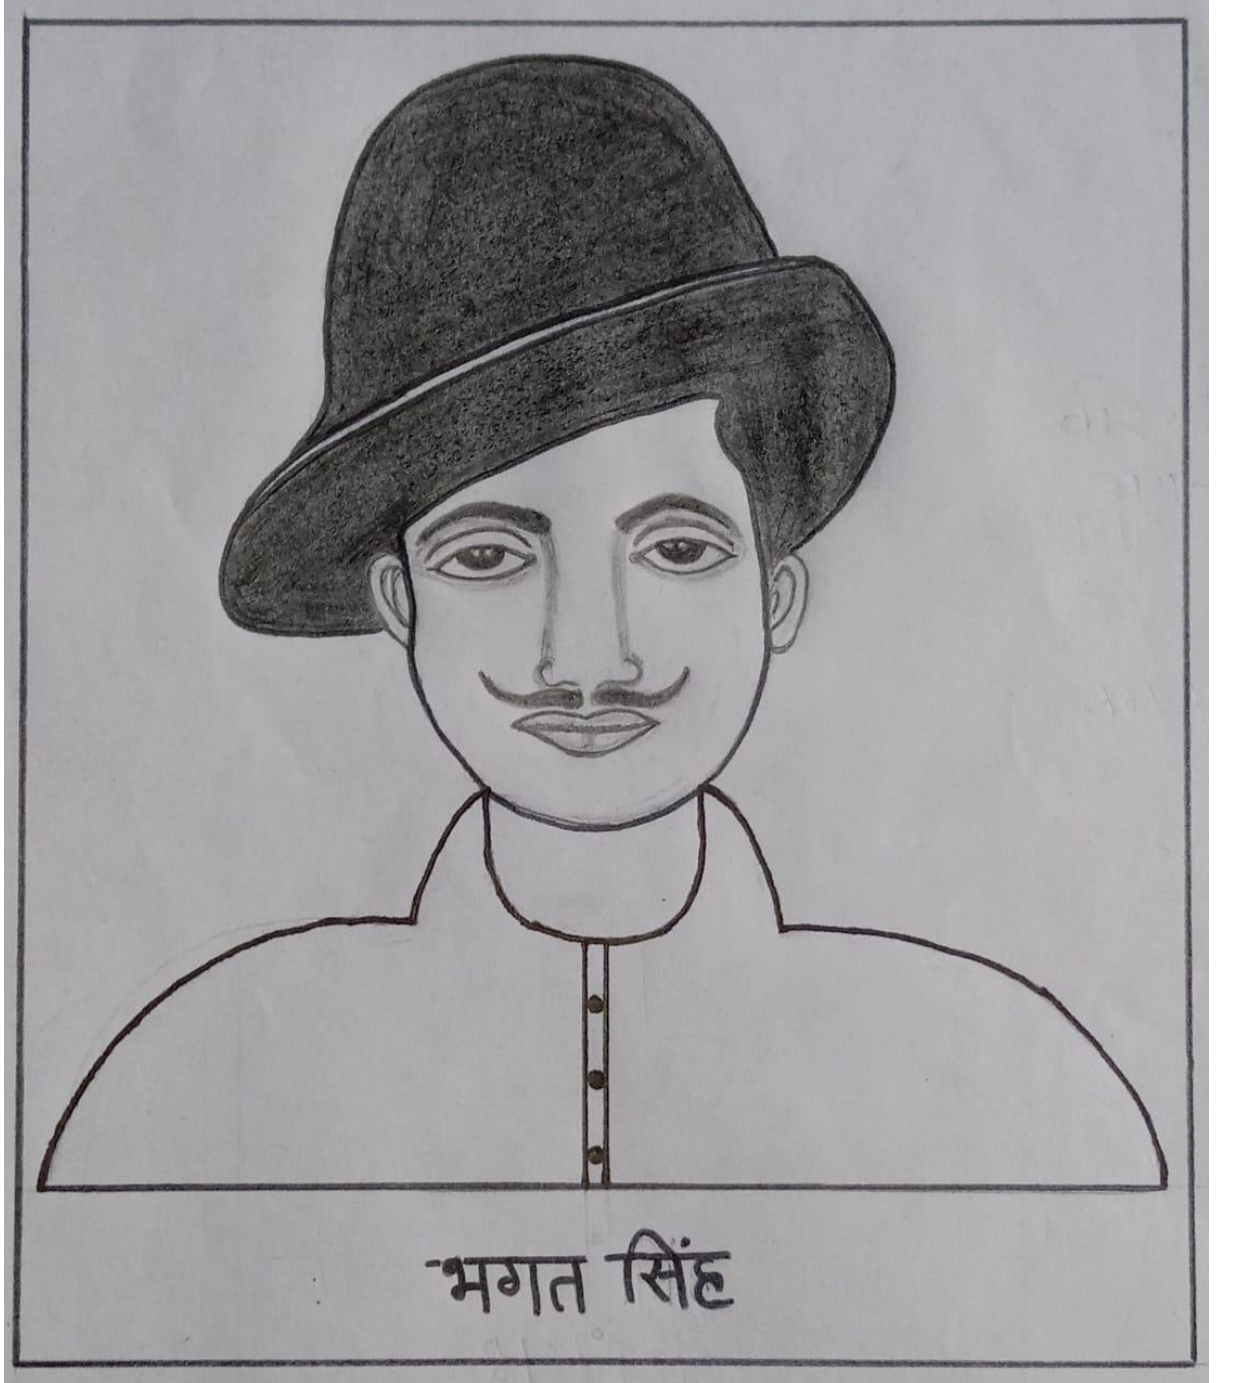 भगत सिंह